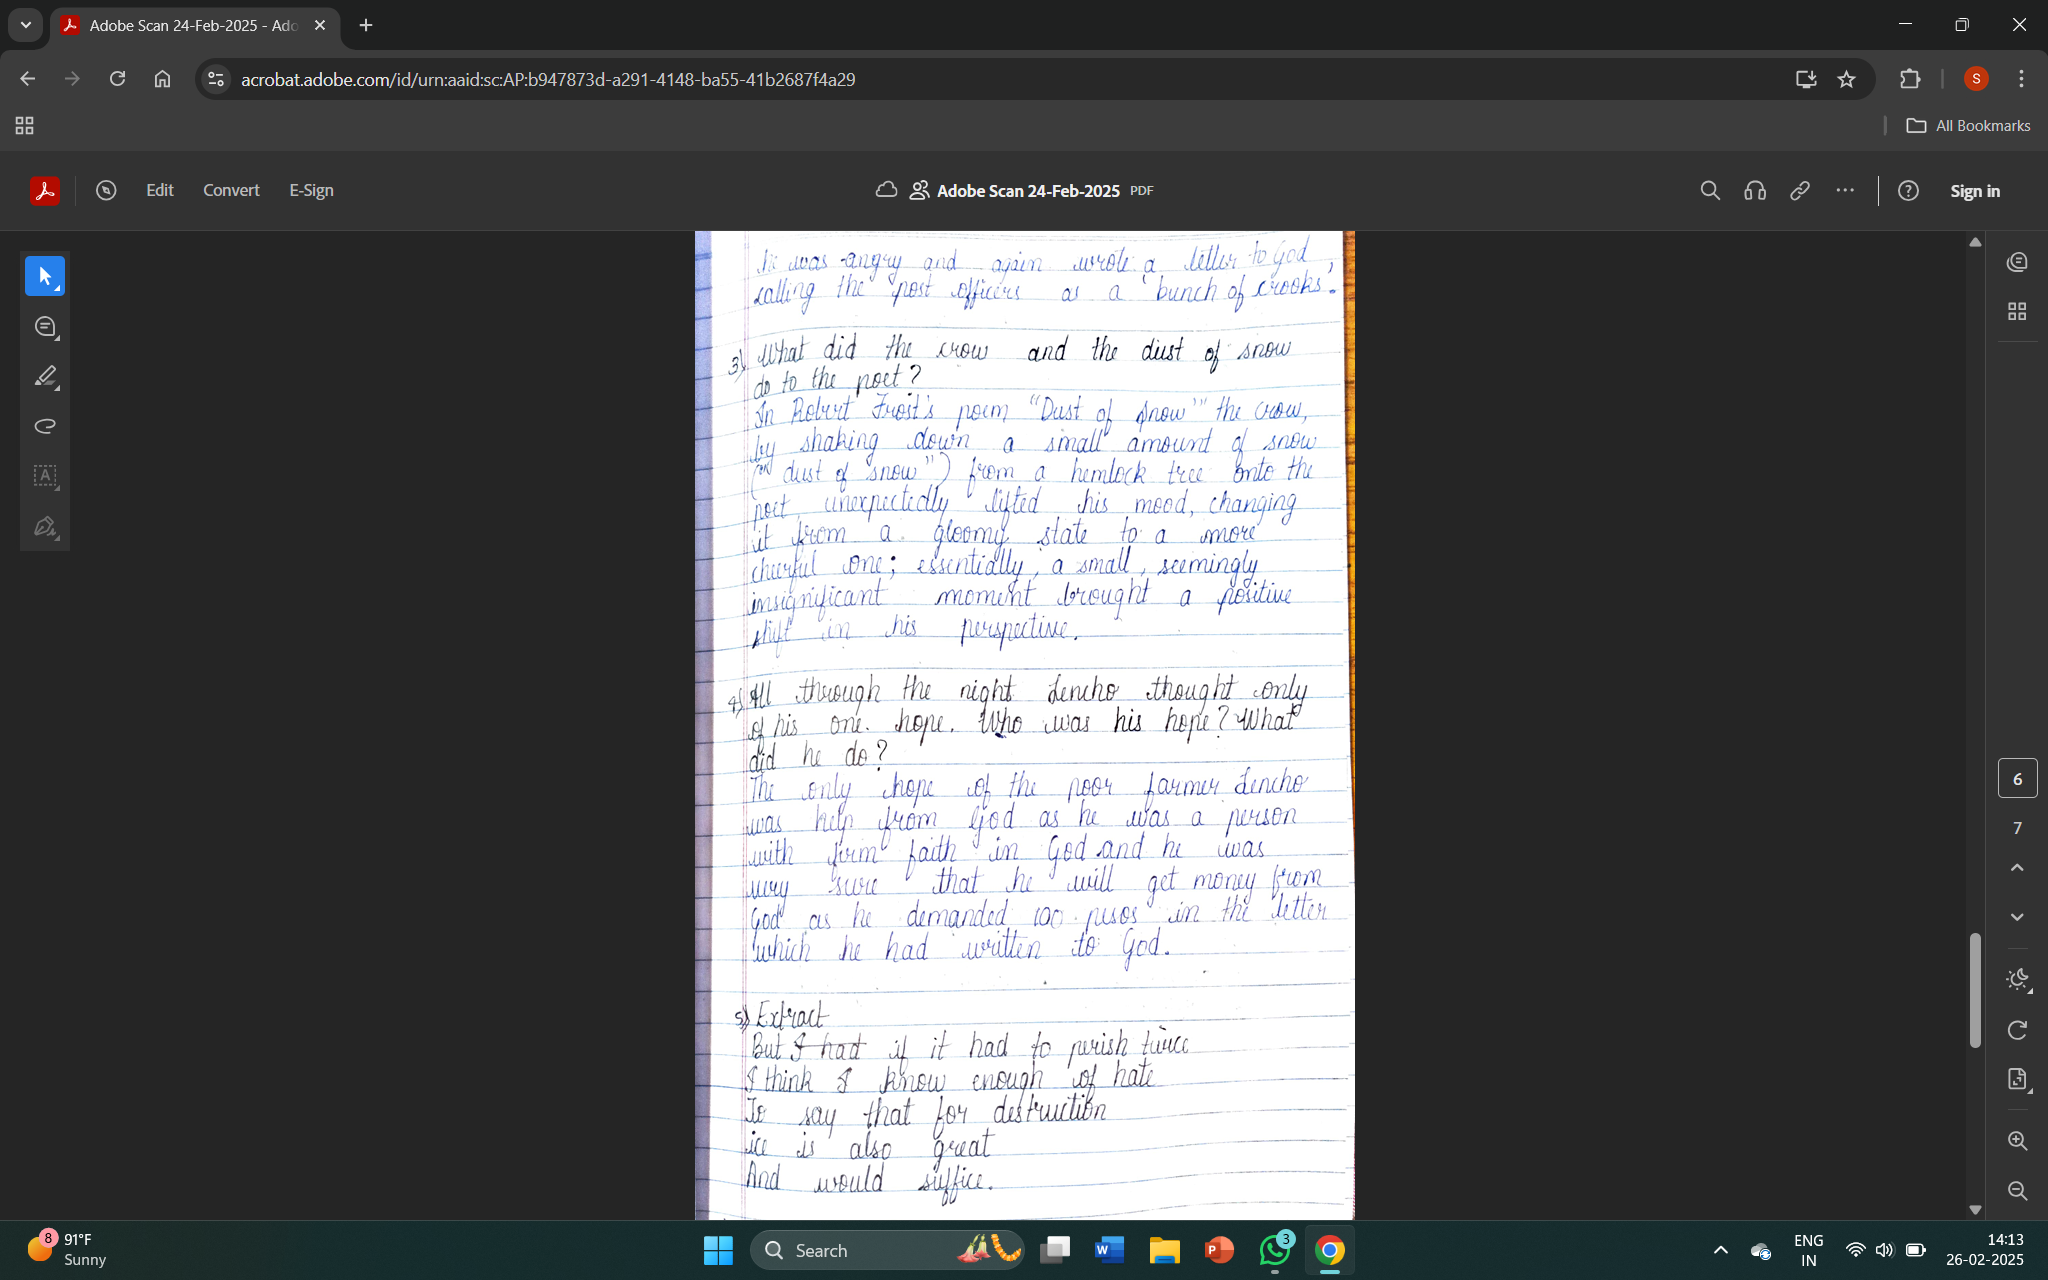 Adobe Scan 24-Feb-2025 - Ado
acrobat.adobe.com/id/urn:aaid:sc:AP:b947873d-a291-4148-ba55-41b2687f4a29
All Bookmarks
Edit Convert E-Sign
Adobe Scan 24-Feb-2025 PDF
Sign in
he was angry and again wrote a letter to God,
calling the post officers as a 'bunch of crooks'.
3) What did the crow and the dust of snow
do to the poet?
In Robert Frost's poem "Dust of Snow" the crow,
by shaking down a small amount of snow
(" dust of snow") from a hemlock tree onto the
poet unexpectedly lifted his mood, changing
it from a gloomy state to a more
cheerful one; essentially, a small, seemingly
insignificant moment brought a positive
shift in his perspective.
4) All through the night Lencho thought only
of his one hope. Who was his hope? What
did he do?
The only hope of the poor farmer Lencho
was help from God as he was a person
with firm faith in God and he was
very sure that he will get money from
God as he demanded 100 pesos in the letter
which he had written to God.
5) Extract
But I had if it had to perish twice
I think I know enough of hate
To say that for destruction
ice is also great
And would suffice.
6
7
8
91°F
Sunny
Search
3
ENG
IN
14:13
26-02-2025